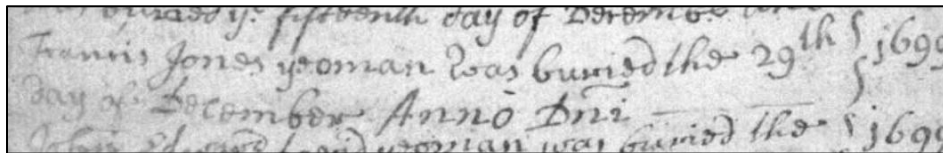 was buried ye fifteenth day of December Anno
Francis Jones yeoman was buried the 29th } 1699
day of December Anno Dni
John Edward yeoman was buried the } 1699